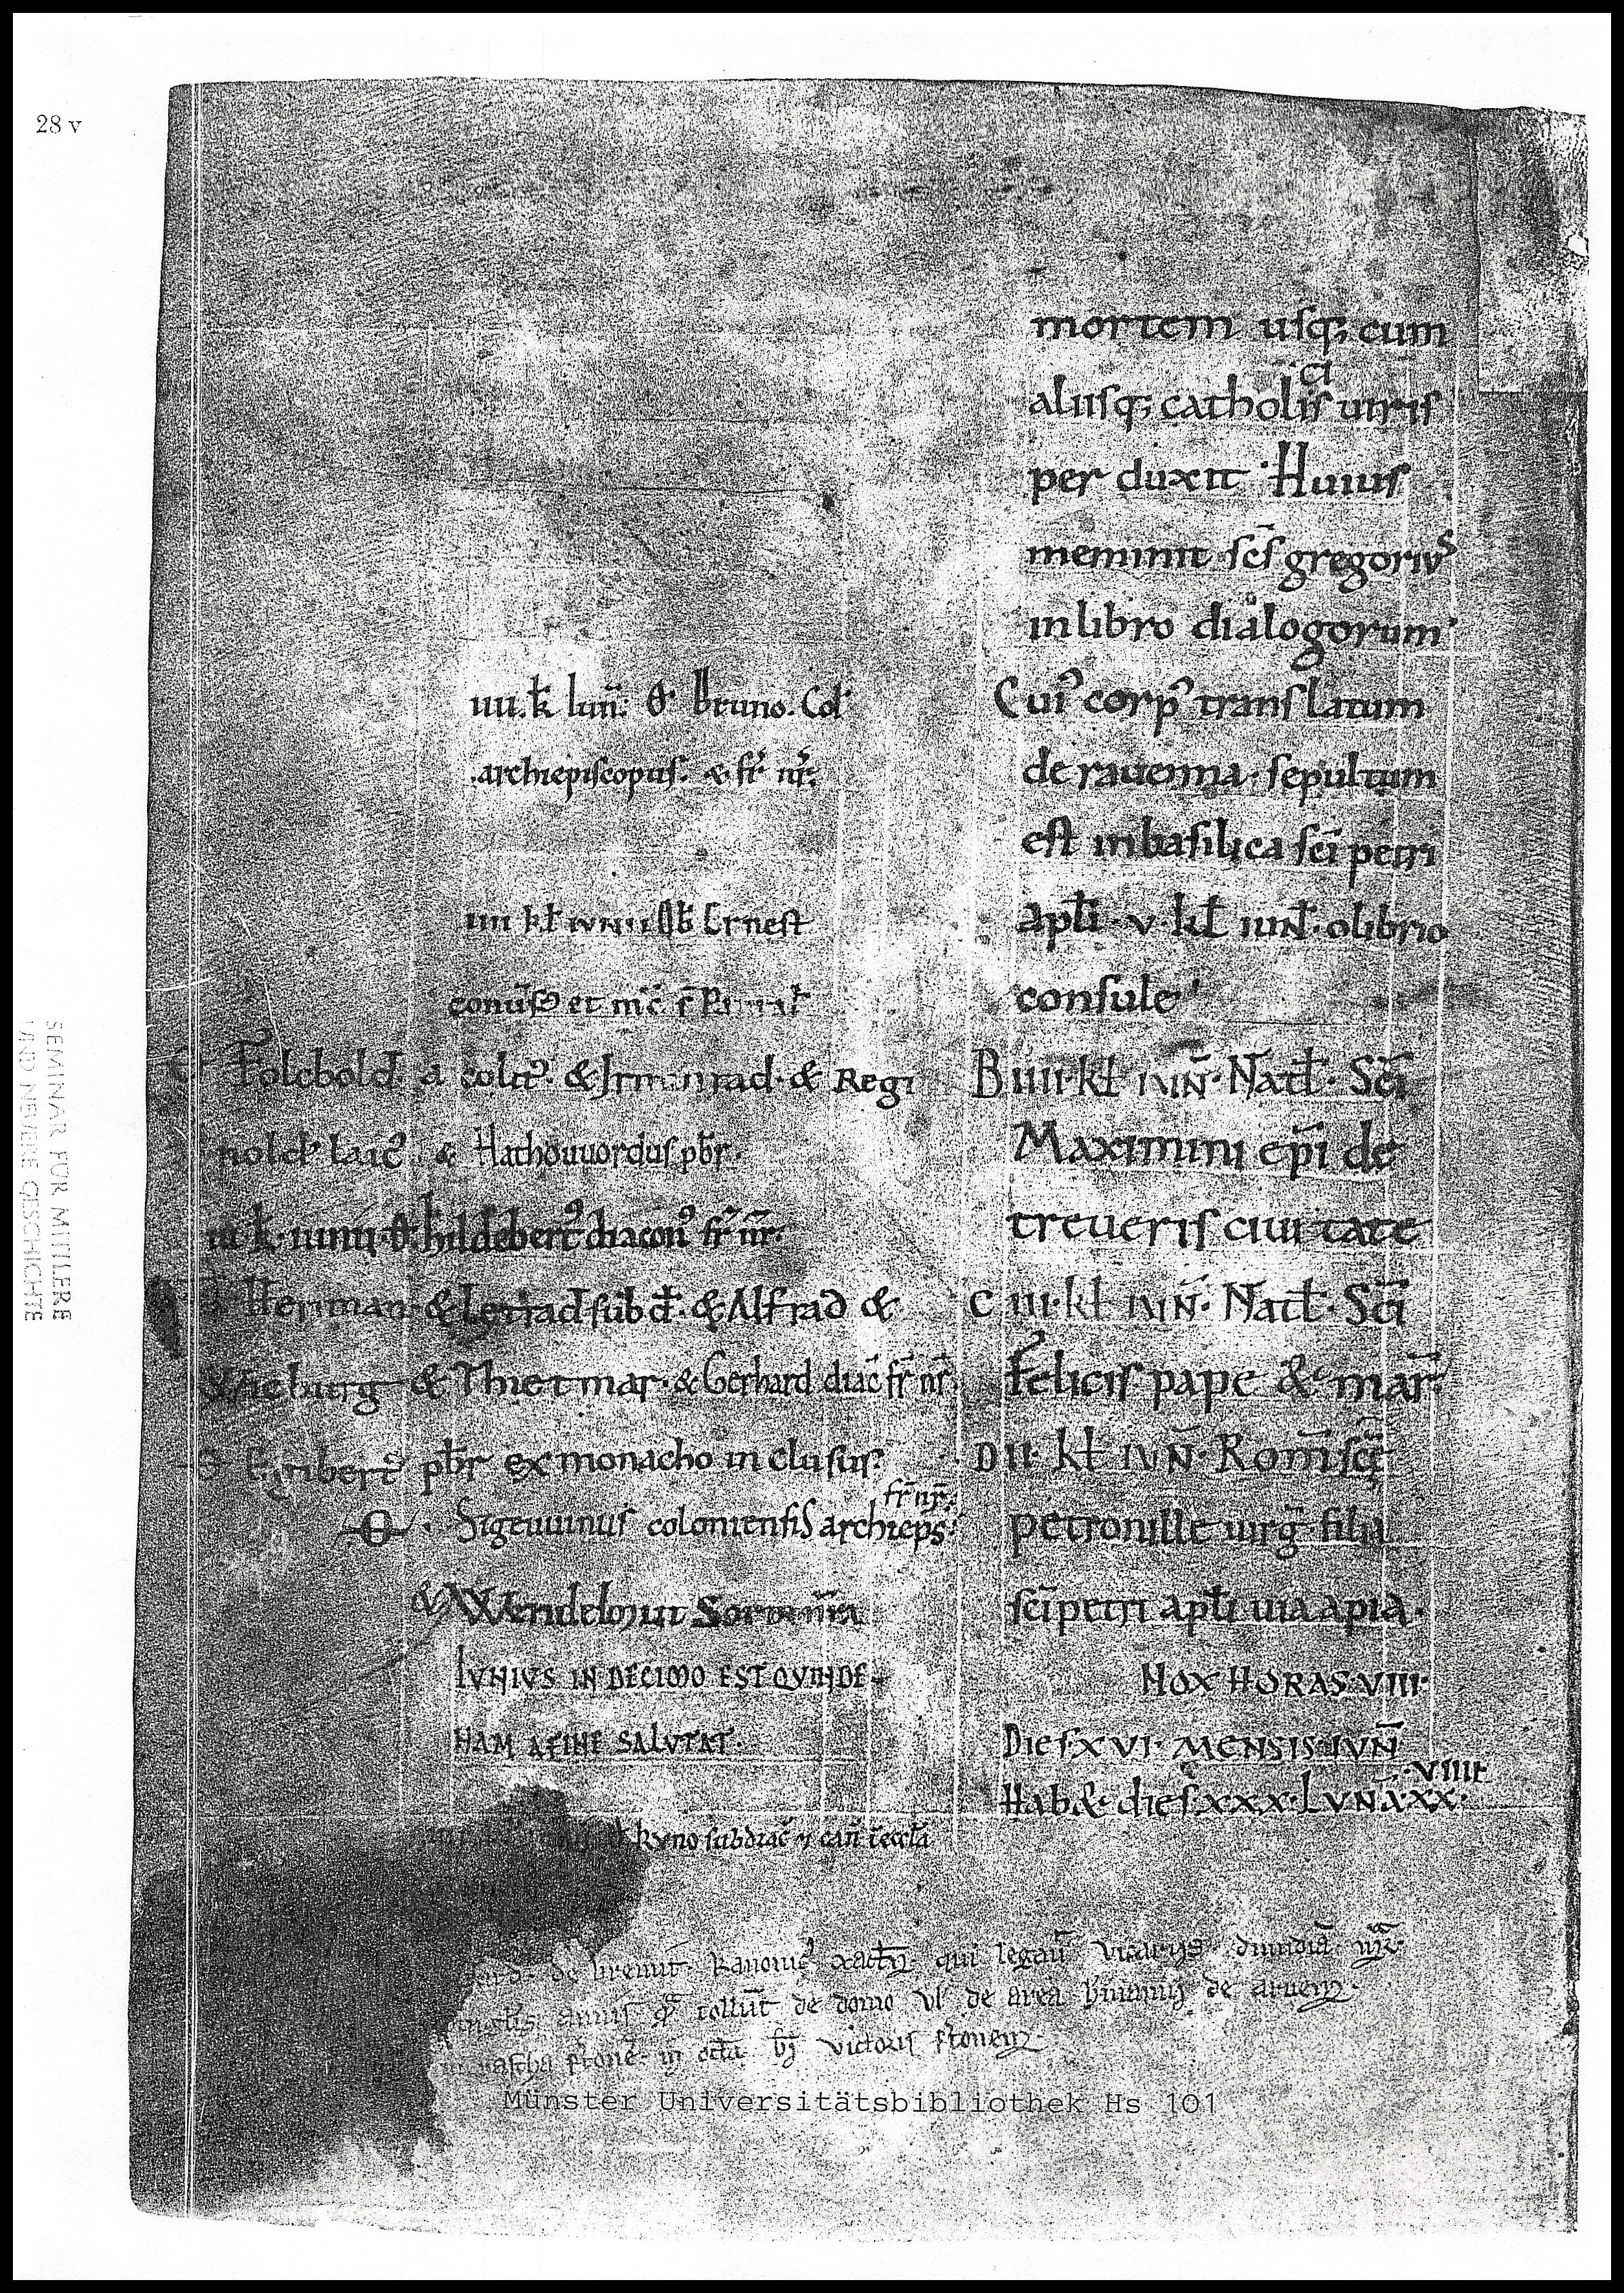 28 v
mortem usq; cum
aliisq; catholis uiris
ci
per duxit· Huius
meminit scs̄ gregoriuˢ
in libro dialogorum·
Cui᾿ corp᾿ translatum
de rauenna· sepultum
est in basilica sci̅ petri
apl̅i· v· kl̅ iun̅· olibrio
consule·
B iiii· kl̅ iun̅· Natl̅· Sci̅
Maximini ep̅i de
treueris ciuitate
C iii· kl̅ iun̅· Natl̅· Sci̅
Felicis pape & mar̅·
D ii· kl̅ iun̅· Rom̅ sce̅
petronille uirg̅ filia
sci̅ petri apl̅i uia apia·
NOX HORAS VIII·
Dies XVI· MENSIS IUN̅
Hab& dies xxx· LUNA XX·
·VIIII·
iiii. k̅ Iun̅: Ꝋ Bruno. Col᾿
archiepiscopus: & fr̄ nr̄:
iiii kl̅ iunii Ob̅ Ernest
conūs et
Folcbold & Irminrad· & Regi
nold laic᾿ & Hathouuordus pb̅r·
iii k̅· iunii· Ꝋ· hildebert᾿ diacon᾿ fr̄ nr̄·
Herman· & subd̅· & Alfrad &
& Thietmar· & Gerhard diac̅ fr̄ nr̄·
pb̅r ex monacho in clusus·
fr̄ nr̄·
Ꝋ· Sigeuuinus coloniensis archiep̅s·
& Wendelmut
IUNIUS IN DECIMO EST QUINDE-
NAM A FINE SALUTAT·
kyno subdiac̅ & can̅ eccl̅a
de bremt· kanonic᾿ xact̅· qui legau̅ vicariis· dimidia̅
annis tollūt de domo ul᾿ de area
in pascha in oct̅a· b̅i victoris
Münster Universitätsbibliothek Hs 101
SEMINAR FÜR MITTLERE
UND NEUERE GESCHICHTE